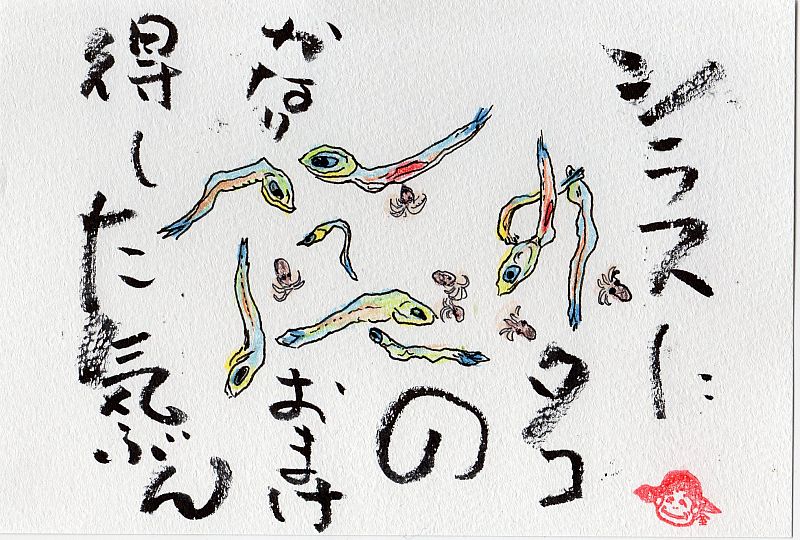 シラスに
タコ
の
おまけ
かなり
得した気ぶん